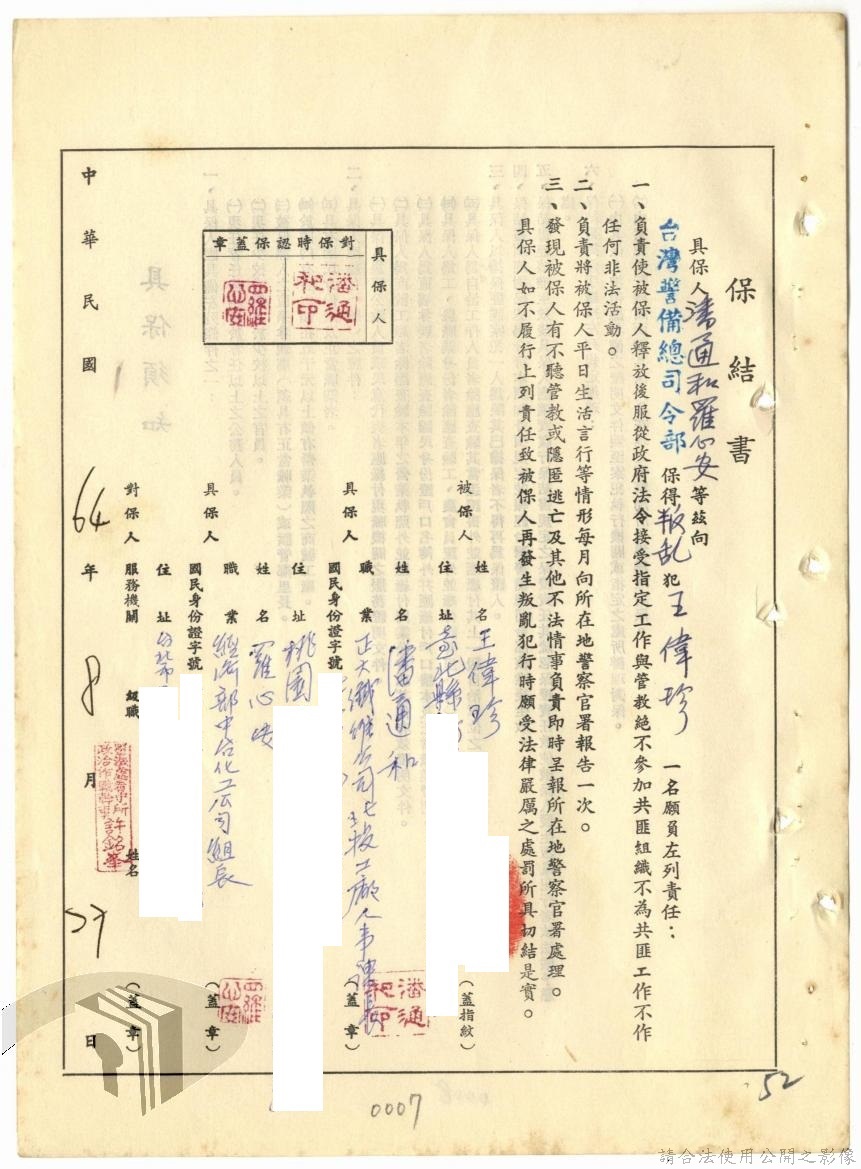 保結書
具保人潘通和羅心安等茲向
台灣警備總司令部 保得叛乱犯王偉珍 一名願員左列責任：
一、負責使被保人釋放後服從政府法令接受指定工作與管教絕不參加共匪組織不為共匪工作不作
任何非法活動。
二、負責將被保人平日生活言行等情形每月向所在地警察官署報告一次。
三、發現被保人有不聽管教或隱匿逃亡及其他不法情事負責即時呈報所在地警察官署處理。
具保人如不履行上列責任致被保人再發生叛亂犯行時願受法律嚴厲之處罰所具切結是實。
被保人 姓名 王偉珍 （蓋指紋）
住址 臺北縣
具保人 姓名 潘通和
職業 正大纖維公司七投工廠人事課長 （蓋章）
國民身份證字號
住址 桃園
具保人 姓名 羅心安
職業 經濟部中台化工公司組長 （蓋章）
國民身份證字號
對保人 住址 台北市
服務機關 級職 姓名 （蓋章）
具保人
對保時認保蓋章
潘通和印
羅心安
中華民國64年8月27日
許銘華
0007
52
請合法使用公開之影像